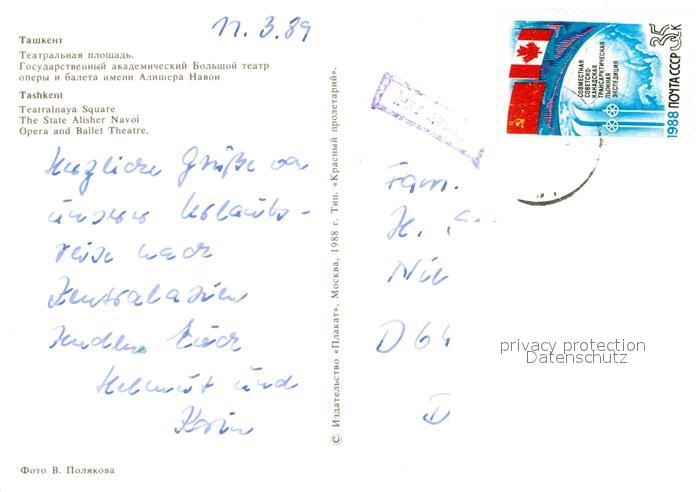 11.3.89
Ташкент
Театральная площадь.
Государственный академический Большой театр
оперы и балета имени Алишера Навои
Tashkent
Teatralnaya Square
The State Alisher Navoi
Opera and Ballet Theatre.
Herzliche Grüße von
unserer Urlaubs-
reise nach
Zentralasien
senden Euch
Helmut und
Karin
Фото В. Полякова
© Издательство «Плакат». Москва, 1988 г. Тип. «Красный пролетарий».
35 к
СОВМЕСТНАЯ
СОВЕТСКО-
КАНАДСКАЯ
ТРАНСАРКТИЧЕСКАЯ
ЛЫЖНАЯ
ЭКСПЕДИЦИЯ
1988 ПОЧТА СССР
Fam.
H.
D 64
D
privacy protection
Datenschutz